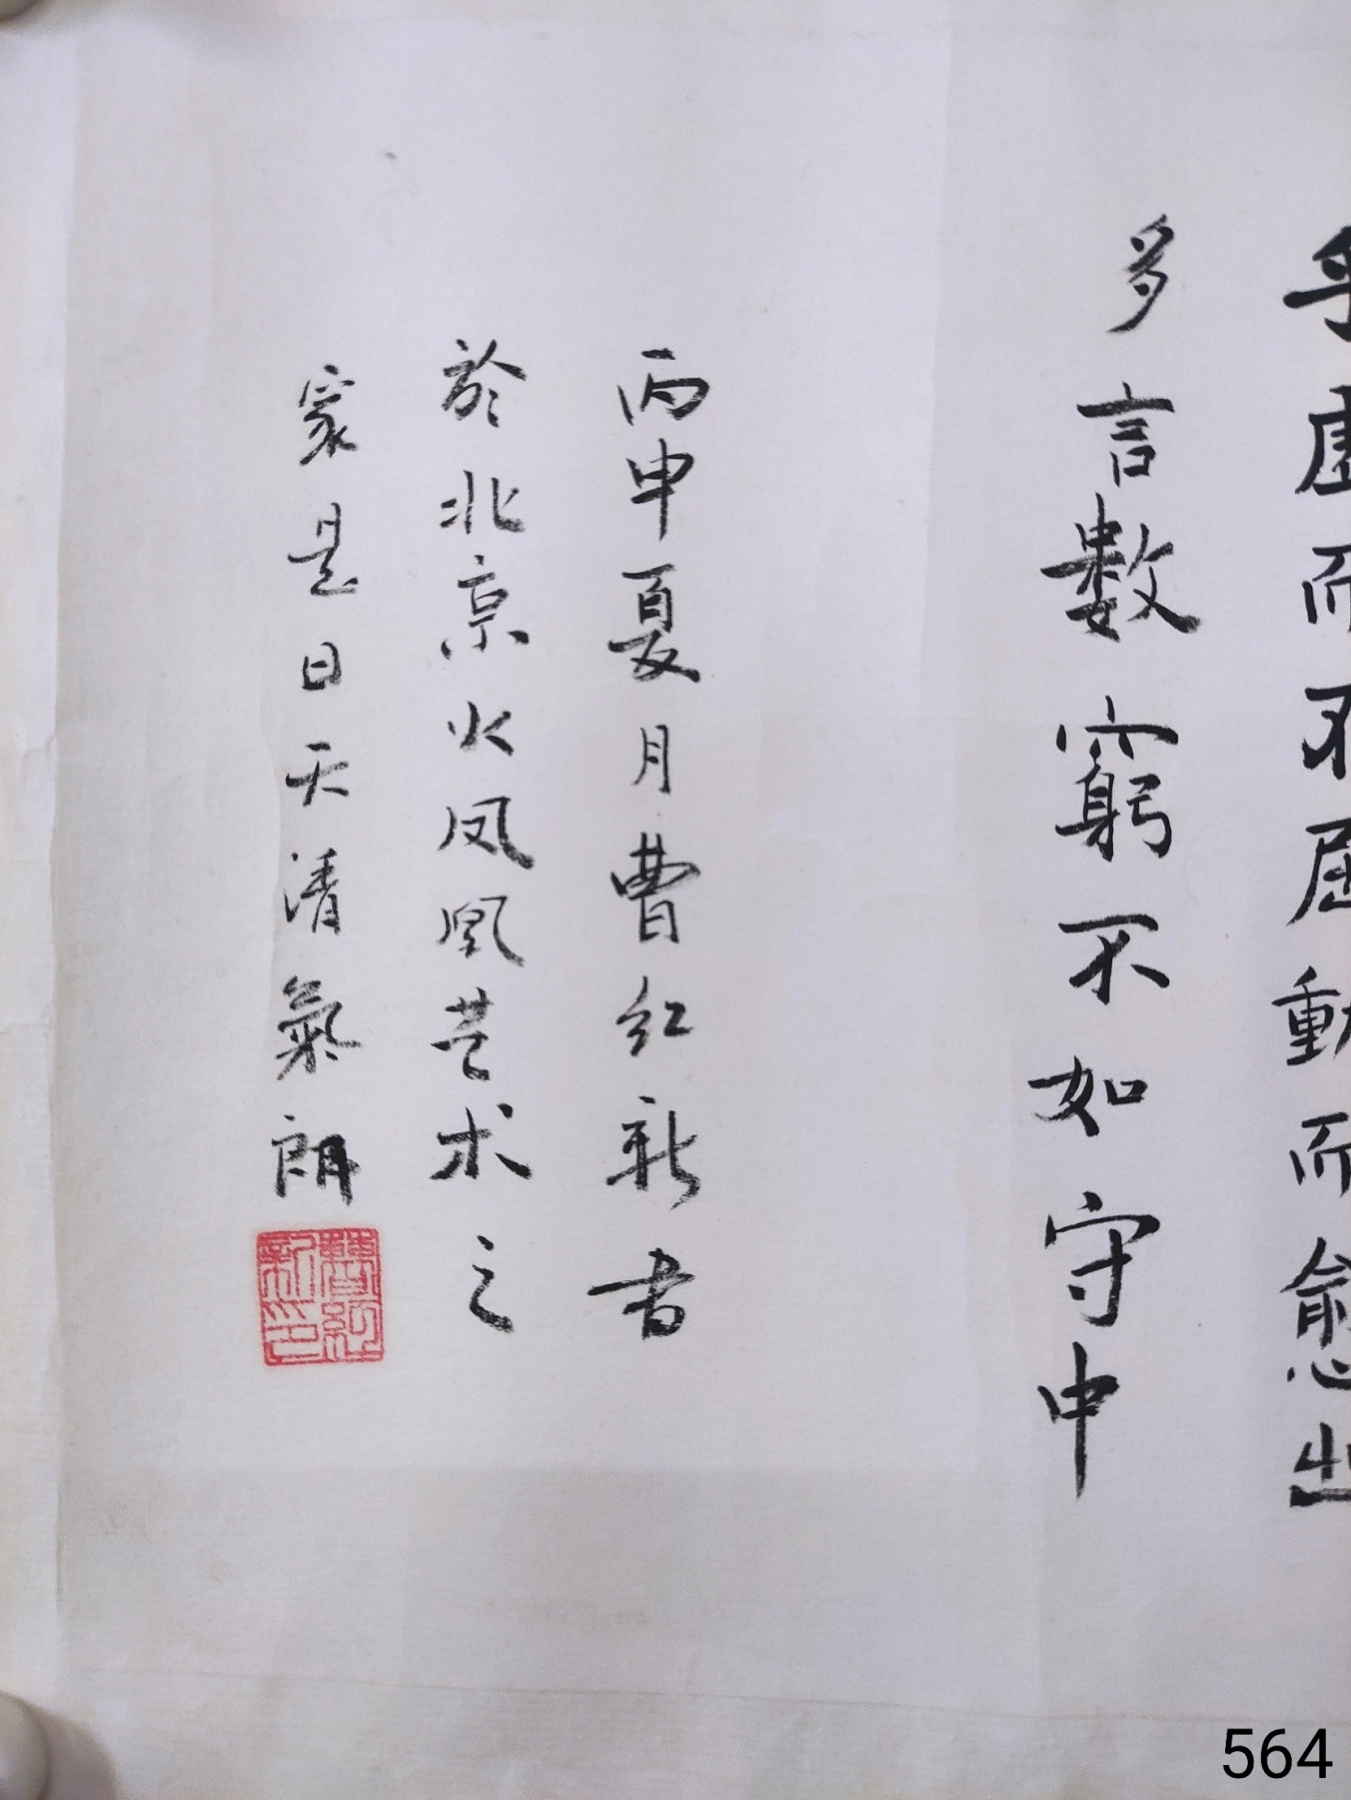 乎虛而不屈動而愈出
多言數窮不如守中
丙申夏月曹紅新書
於北京火凤凰芸术之
家是日天清氣朗
曹紅新印
564